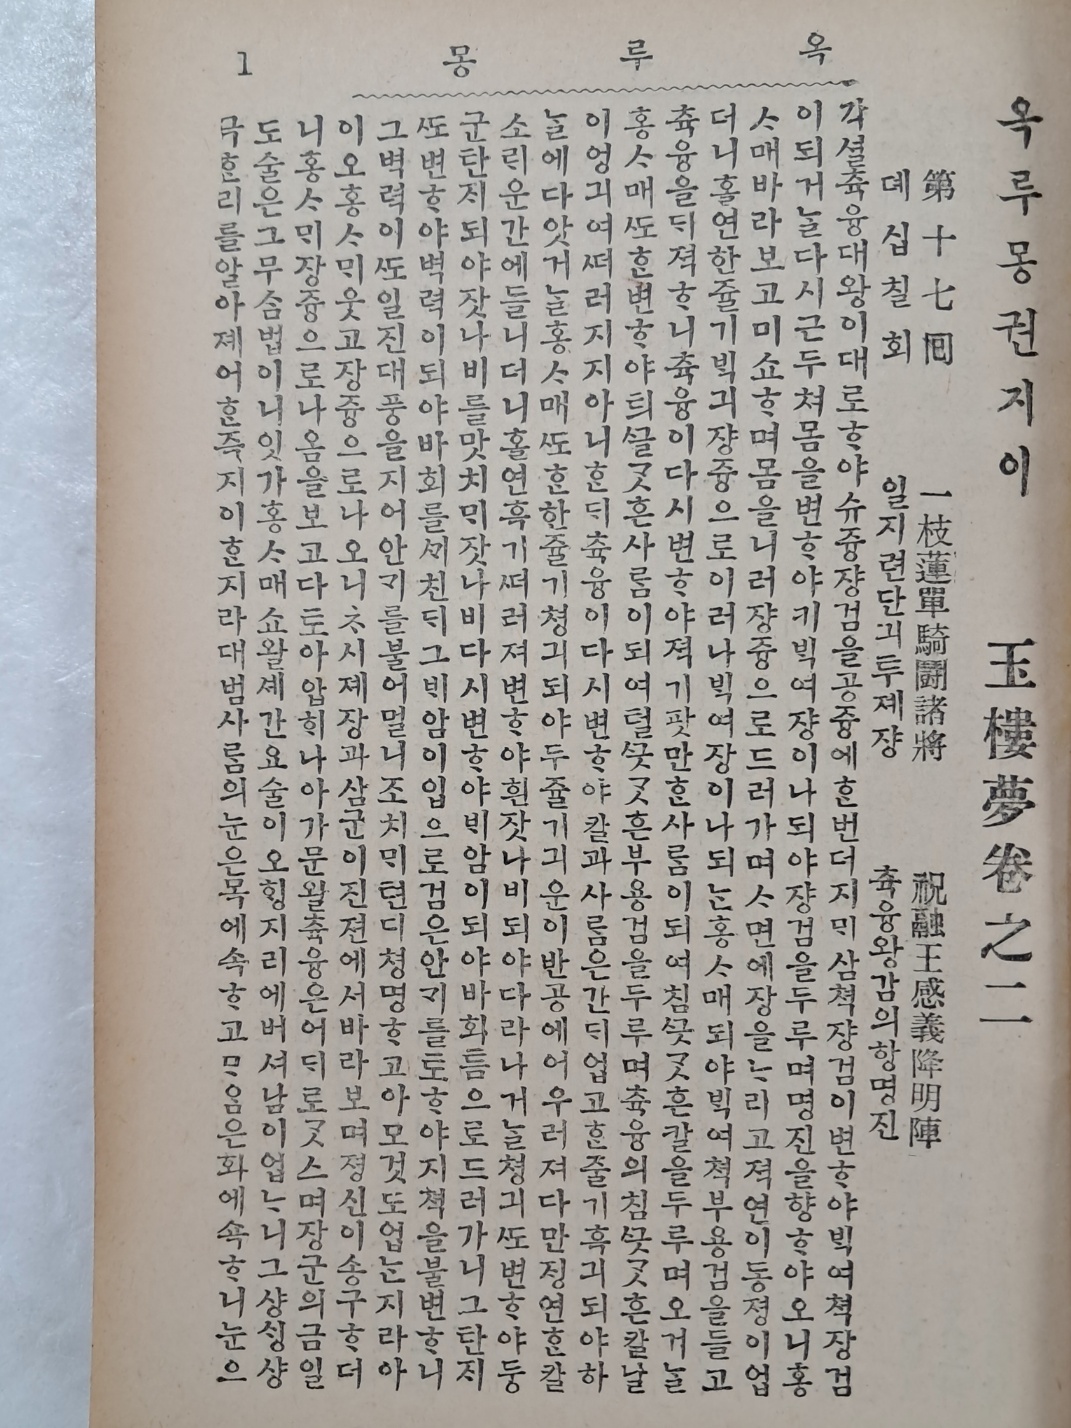 옥루몽 1
옥루몽권지이 玉樓夢卷之二
第十七囘 一枝蓮單騎鬪諸將 祝融王感義降明陣
뎨십칠회 일지련단긔투졔쟝 츅융왕감의항명진
각셜츅융대왕이대로ᄒᆞ야슈즁쟝검을공즁에ᄒᆞᆫ번더지ᄆᆡ삼쳑쟝검이변ᄒᆞ야ᄇᆡᆨ여쳑장검
이되거ᄂᆞᆯ다시근두쳐몸을변ᄒᆞ야키ᄇᆡᆨ여쟝이나되야쟝검을두루며명진을향ᄒᆞ야오니홍
ᄉᆞ매바라보고미쇼ᄒᆞ며몸을니러쟝즁으로드러가며ᄉᆞ면에장을ᄂᆞ리고젹연이동졍이업
더니홀연한쥴기ᄇᆡᆨ긔쟝즁으로이러나ᄇᆡᆨ여장이나되ᄂᆞᆫ홍ᄉᆞ매되야ᄇᆡᆨ여쳑부용검을들고
츅융을ᄃᆡ젹ᄒᆞ니츅융이다시변ᄒᆞ야젹기팟만ᄒᆞᆫ사ᄅᆞᆷ이되여침ᄭᅳᆺᄀᆞᆺ흔칼을두루며오거ᄂᆞᆯ
홍ᄉᆞ매ᄯᅩᄒᆞᆫ변ᄒᆞ야틔ᄭᅳᆯᄀᆞᆺ흔사ᄅᆞᆷ이되여털ᄭᅳᆺᄀᆞᆺ흔부용검을두루며츅융의침ᄭᅳᆺᄀᆞᆺ흔칼날
이엉긔여ᄯᅥ러지지아니ᄒᆞᆫᄃᆡ츅융이다시변ᄒᆞ야칼과사ᄅᆞᆷ은간ᄃᆡ업고ᄒᆞᆫ줄기흑긔되야하
ᄂᆞᆯ에다앗거ᄂᆞᆯ홍ᄉᆞ매ᄯᅩᄒᆞᆫ한쥴기쳥긔되야두쥴기긔운이반공에어우러져다만졍연ᄒᆞᆫ칼
소ᄅᆡ운간에들니더니홀연흑기ᄯᅥ러져변ᄒᆞ야흰잣나비되야다라나거ᄂᆞᆯ쳥긔ᄯᅩ변ᄒᆞ야둥
군탄ᄌᆡ되야잣나비를맛치ᄆᆡ잣나비다시변ᄒᆞ야ᄇᆡ암이되야바화틈으로드러가니그탄ᄌᆡ
ᄯᅩ변ᄒᆞ야벽력이되야바회를ᄭᆡ친ᄃᆡ그ᄇᆡ암이입으로검은안ᄀᆡ를토ᄒᆞ야지쳑을불변ᄒᆞ니
그벽력이ᄯᅩ일진대풍을지어안ᄀᆡ를불어멀니조치ᄆᆡ텬디쳥명ᄒᆞ고아모것도업ᄂᆞᆫ지라아
이오홍ᄉᆞᄆᆡ웃고장즁으로나오니ᄎᆞ시졔장과삼군이진젼에서바라보며졍신이송구ᄒᆞ더
니홍ᄉᆞᄆᆡ장즁으로나옴을보고다토아압ᄒᆡ나아가문왈츅융은어ᄃᆡ로ᄀᆞᆺ스며장군의금일
도술은그무ᄉᆞᆷ법이니잇가홍ᄉᆞ매쇼왈셰간요술이오ᄒᆡᆼ지리에버셔남이업ᄂᆞ니그샹ᄉᆡᆼ샹
극ᄒᆞᆫ리를알아졔어ᄒᆞᆫ즉지이ᄒᆞᆫ지라대범사ᄅᆞᆷ의눈은목에속ᄒᆞ고ᄆᆞᄋᆞᆷ은화에속ᄒᆞ니눈으